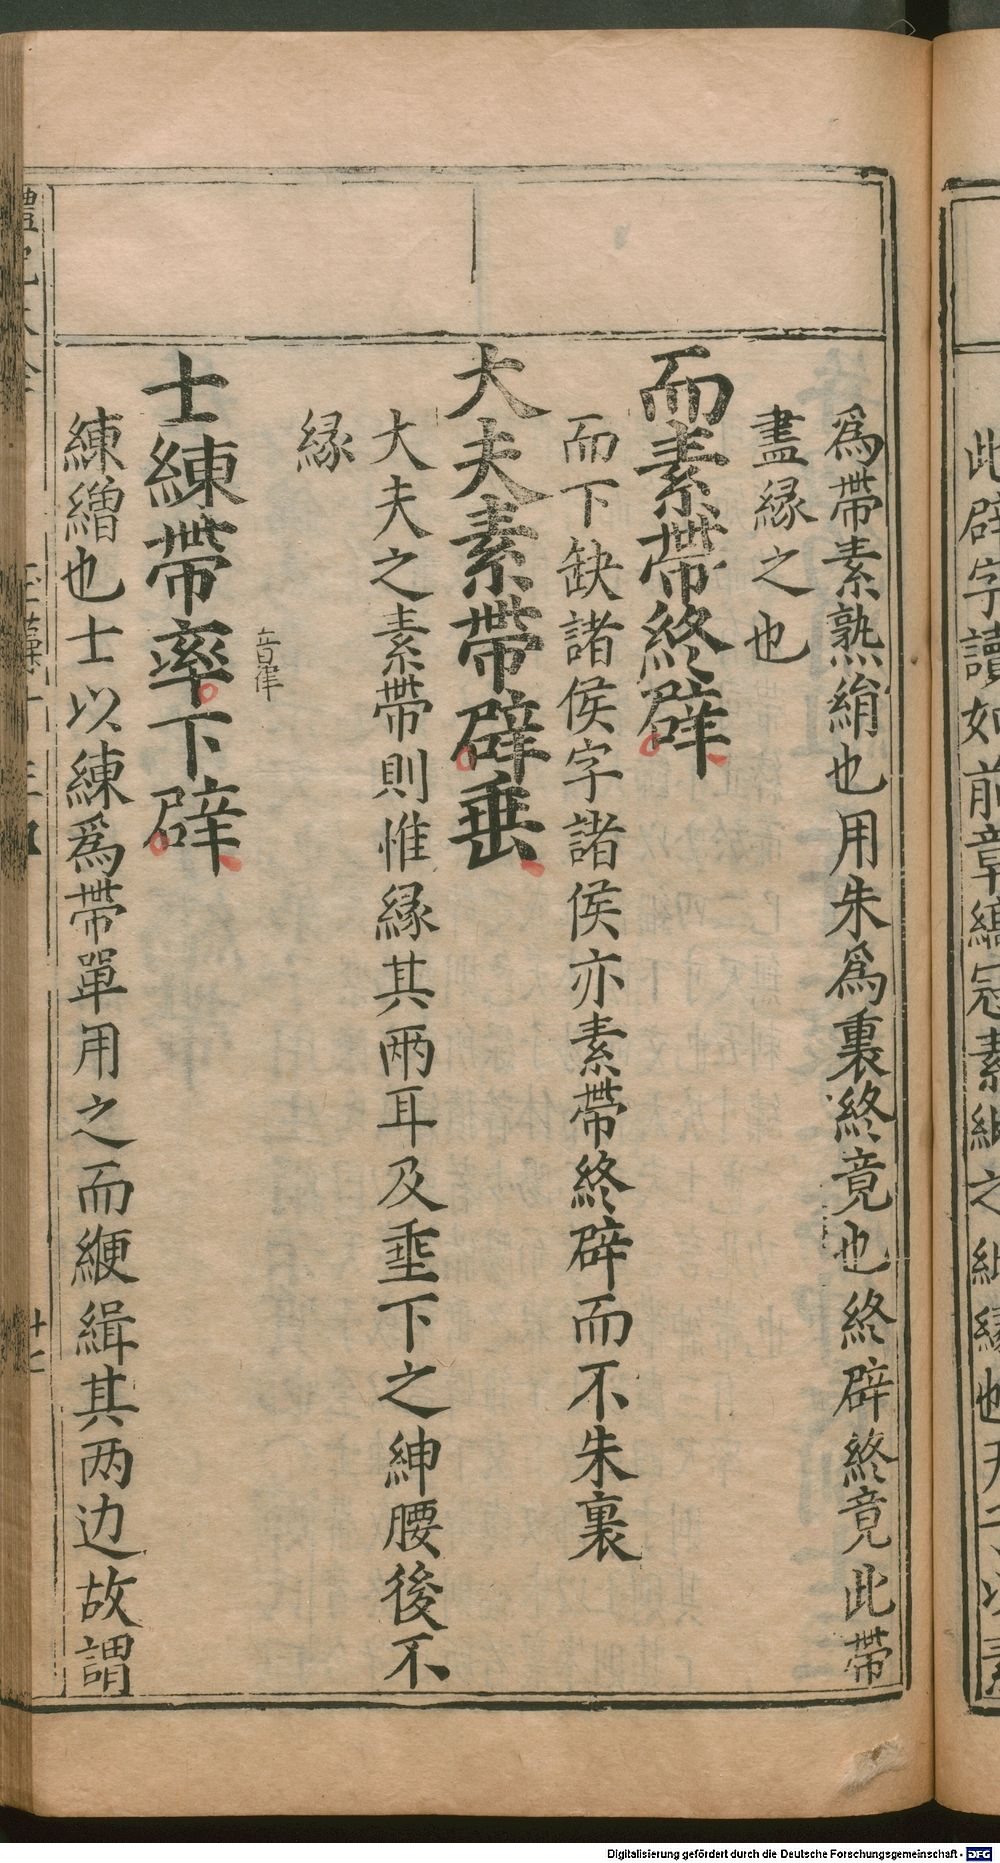 爲帶素熟絹也用朱爲裏終竟也終辟終竟此帶
盡緣之也
而素帶終辟
而下缺諸侯字諸侯亦素帶終辟而不朱裏
大夫素帶辟垂
大夫之素帶則惟緣其兩耳及垂下之紳腰後不
緣
音律
士練帶率下辟
練繒也士以練爲帶單用之而緶緝其两边故謂
此辟字讀如前章縞冠素紕之紕緣也天子以素
Digitalisierung gefördert durch die Deutsche Forschungsgemeinschaft - DFG